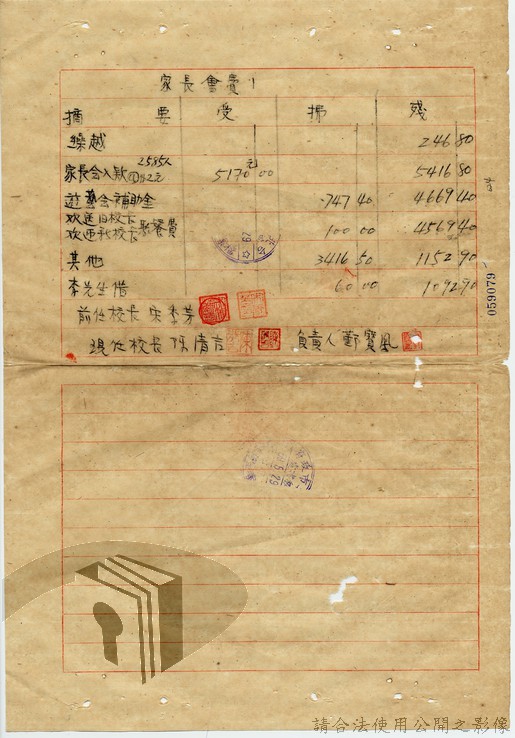 家長會費
摘要 受 拂 殘
繰越 246 80
家長会入款 2585人 @2元 5170元00 5416 80
遊藝会補助金 747 40 4669 40
欢送旧校长 欢迎新校长 聚餐費 100 00 4569 40
其他 3416 50 1152 90
李先生借 60 00 1092 90
前任校长 宋季芳
現任校長 陈清吉 負責人 鄞寶凤
059079
請合法使用公開之影像